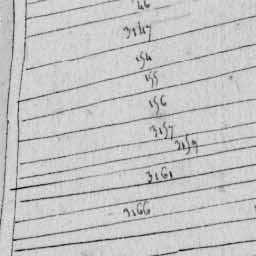 46
3147
154
155
156
3157
3159
3161
3166